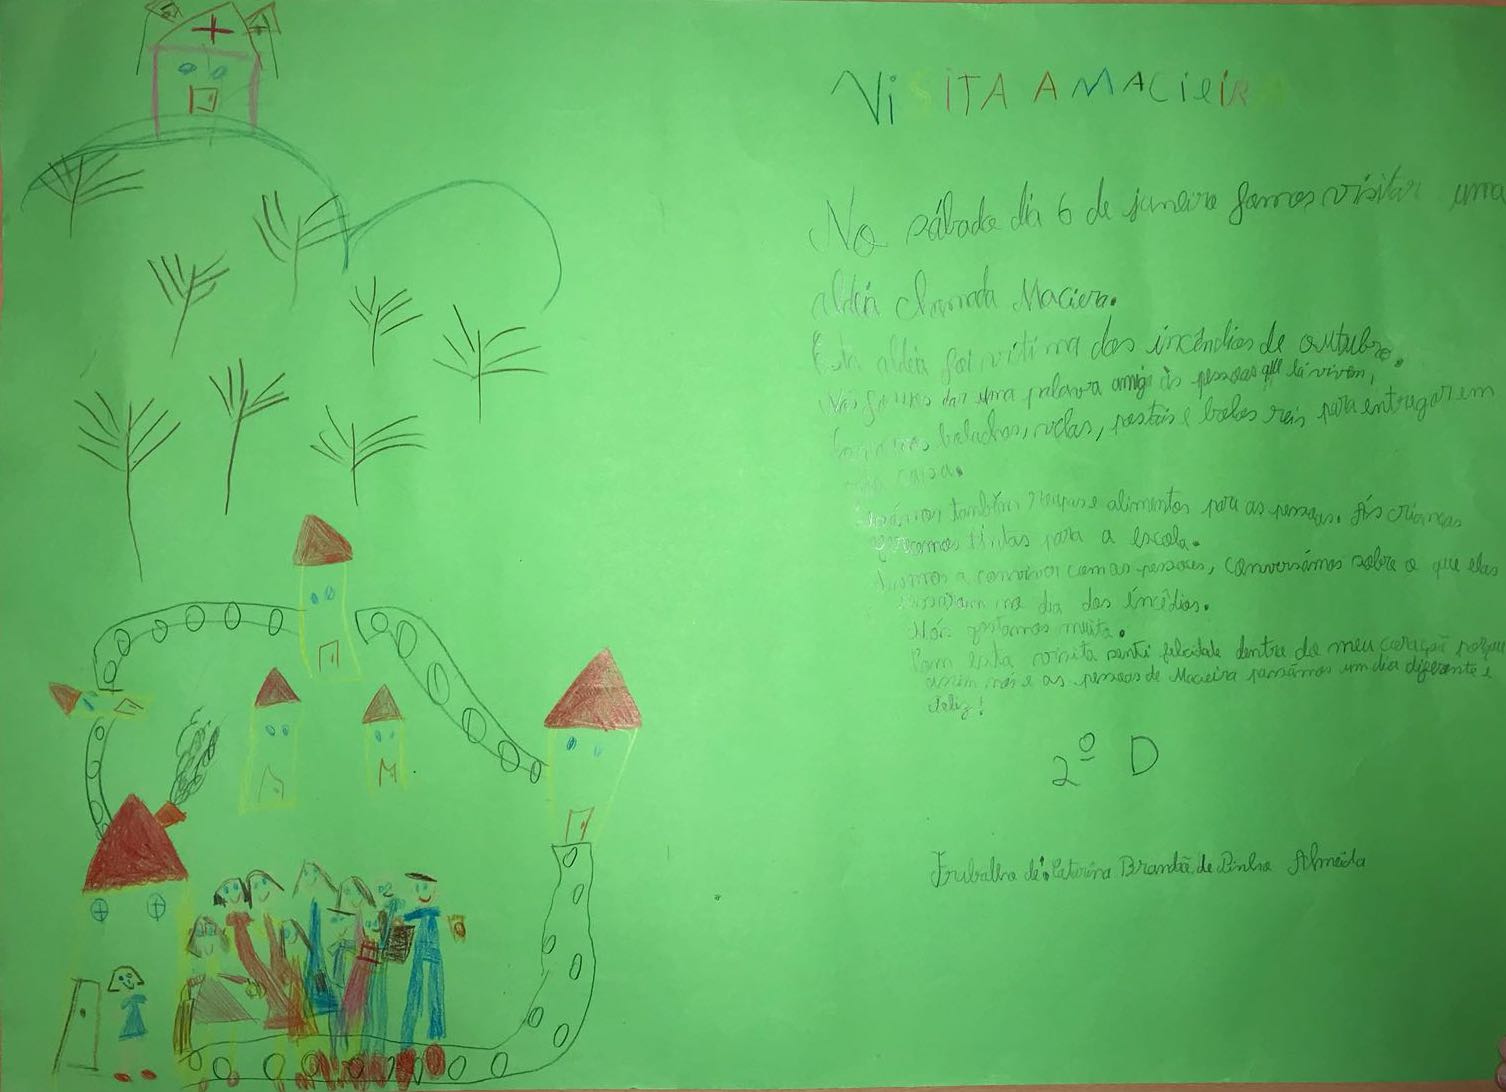 VISITA A MACIEIRA
No sábado dia 6 de janeiro fomos visitar uma
aldeia chamada Macieira.
Esta aldeia foi vítima dos incêndios de outubro.
Nós fomos dar uma palavra amiga às pessoas que lá vivem,
bolachas, velas, postais e bolos reis para entregar em
casa.
também roupas e alimentos para as pessoas. Às crianças
tintas para a escola.
a conviver com as pessoas, conversámos sobre o que elas
no dia dos incêdios.
Nós gostamos muito.
Com esta visita senti felicidade dentro do meu coração porque
assim nós e as pessoas de Macieira passámos um dia diferente e
feliz!
2º D
Trabalho de: Catarina Brandão de Pinho Almeida